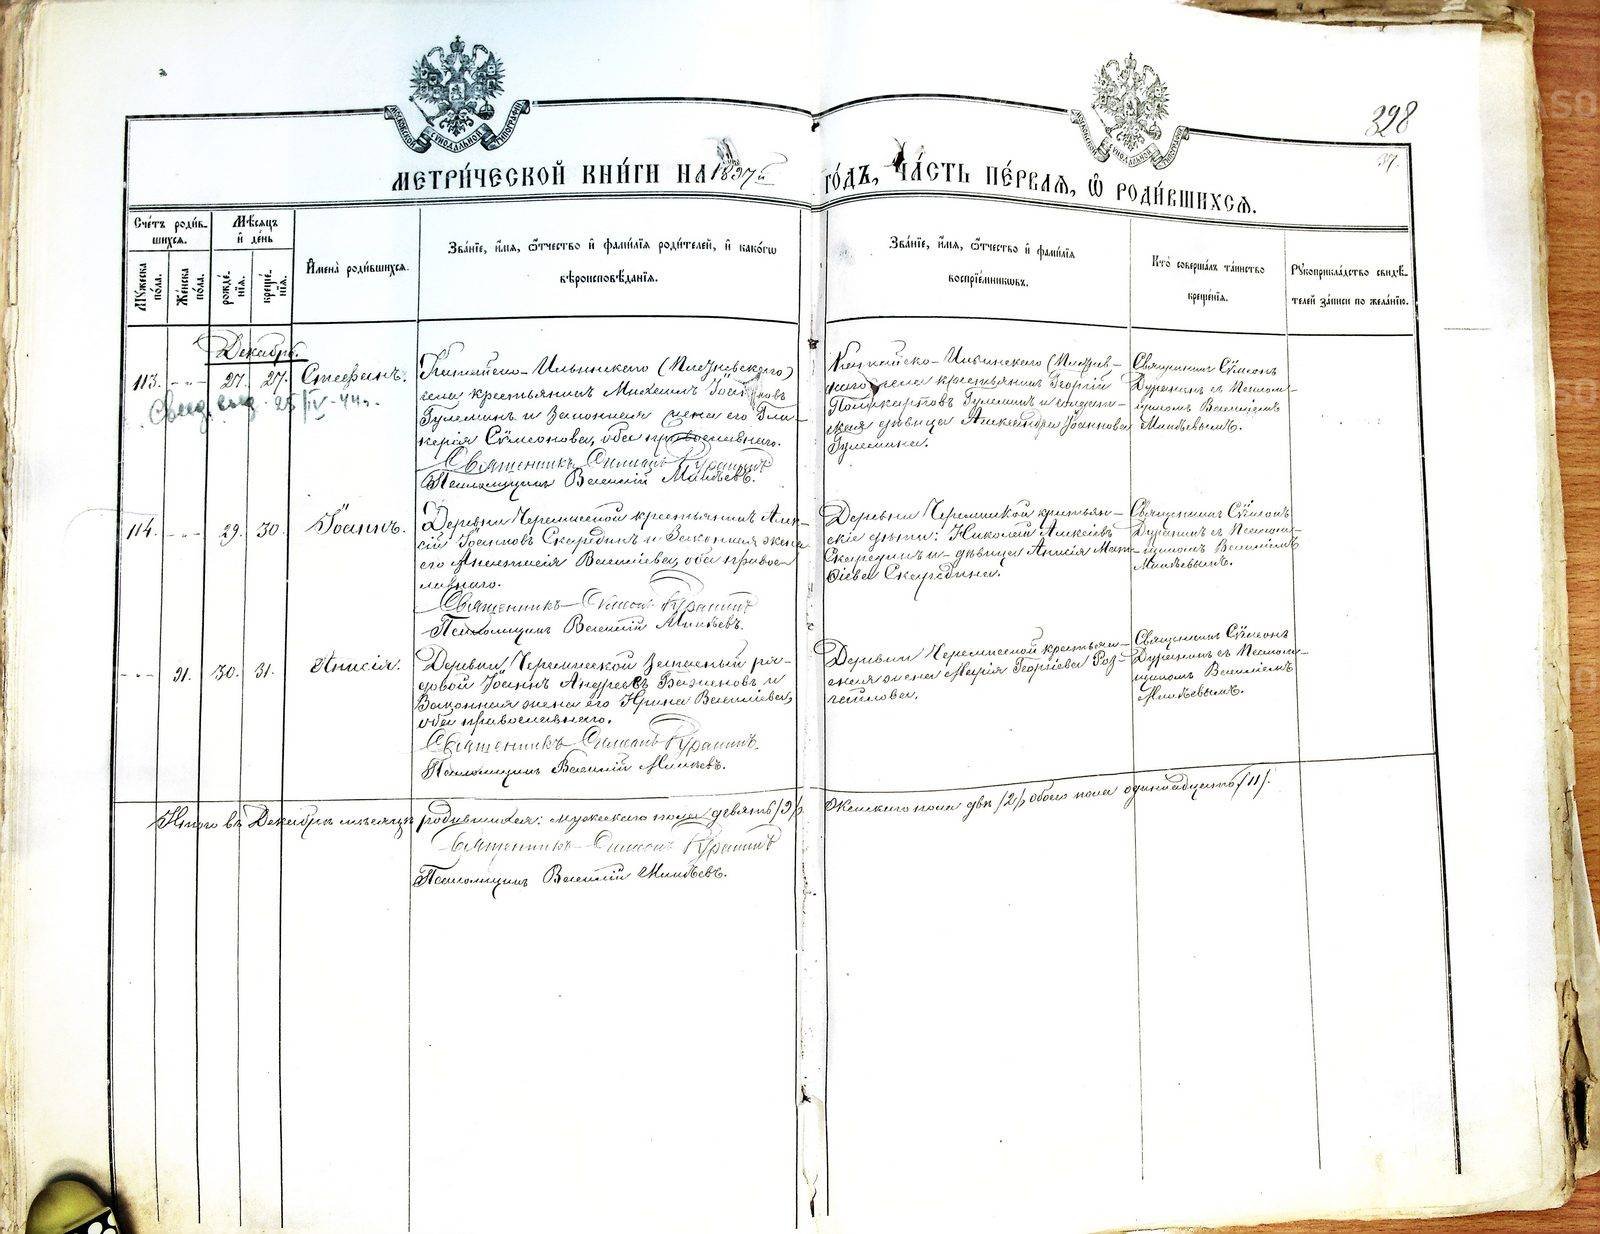 398
37.
МОСКОВСКОЙ СѴНОДАЛЬНОЙ ТИПОГРАФІИ
МОСКОВСКОЙ СѴНОДАЛЬНОЙ ТИПОГРАФІИ
МЕТРИ́ЧЕСКОЙ КНИ́ГИ НА 1897й ГО́ДЪ, ЧА́СТЬ ПЕ́РВАЯ, Ѿ РОДИ́ВШИХСЯ.
Сче́тъ роди́в-
шихся.
Мꙋжеска по́ла.
Же́нска по́ла.
Мѣ́сяцъ
и҆ де́нь
рожде́нія.
креще́нія.
И҆мена̀ роди́вшихся.
Зва́нїе, и҆́мя, ѻ҆́тчество и҆ фами́лїя роди́телей, и҆ како́гѡ
вѣроисповѣ́данїя.
Зва́нїе, и҆́мя, ѻ҆́тчество и҆ фами́лїя
воспрїе́мникѡвъ.
Кто̀ соверша́лъ та́инство
креще́нїя.
Рꙋкоприкла́дство свидѣ́-
телей за́писи по жела́нїю.
Декабрь.
113.
27.
27.
Стефанъ.
села крестьянинъ Михаилъ Іоанновъ
Гулеминъ и Законная жена его Гли-
керія Сѵмеонова, оба православнаго.
Священникъ Симеонъ
Псаломщикъ Василій Минѣевъ.
села крестьянинъ Георгій
Поликарповъ Гулеминъ и
дѣвица Александра Іоаннова
Гулемина.
Священникъ Сѵмеонъ
съ Псалом-
щикомъ Василіемъ
Минѣевымъ.
25/IV-44г.
114.
29.
30.
Іоаннъ.
Деревни Черемисской крестьянинъ Алек-
сій Іоанновъ Скарединъ и Законная жена
его Анастасія Васильева, оба право-
славнаго.
Священникъ Симеонъ
Псаломщикъ Василій Минѣевъ.
Деревни Черемисской крестьян-
скіе дѣти: Николай Алексіевъ
Скарединъ и дѣвица Анисія Мат-
ѳіева Скаредина.
Священникъ Сѵмеонъ
съ Псалом-
щикомъ Василіемъ
Минѣевымъ.
91.
30.
31.
Анисія.
Деревни Черемисской Запасный ря-
довой Іоаннъ Андреевъ Баженовъ и
Законная жена его Ирина Васильева,
оба православнаго.
Священникъ Симеонъ
Псаломщикъ Василій Минѣевъ.
Деревни Черемисской крестьян-
ская жена Марія Георгіева
Священникъ Сѵмеонъ
съ Псалом-
щикомъ Василіемъ
Минѣевымъ.
Итого въ Декабрѣ мѣсяцѣ родившихся: мужескаго пола девять /9/, женскаго пола двѣ /2/, обоего пола одинадцать /11/.
Священникъ Симеонъ
Псаломщикъ Василій Минѣевъ.